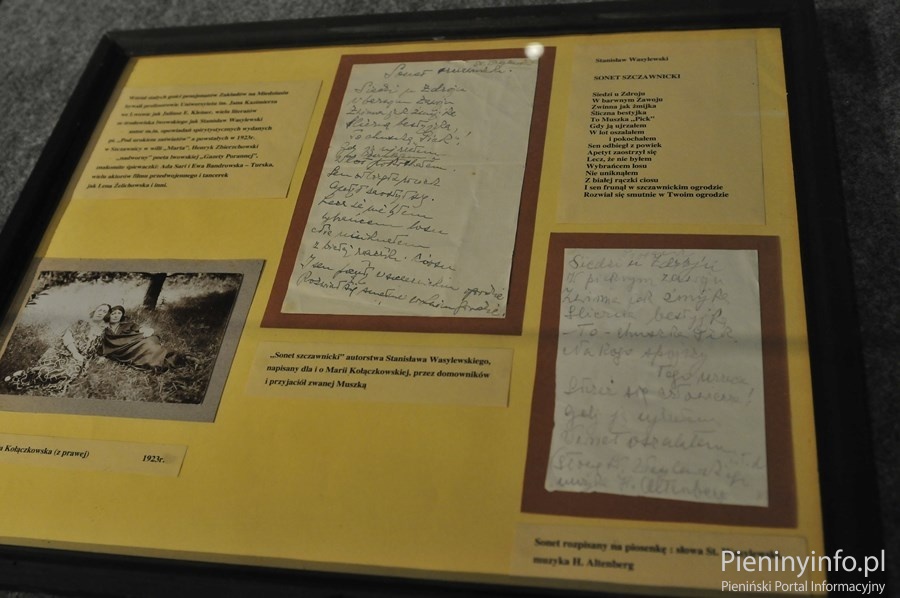 Wśród stałych gości pensjonatów Zakładów na Miodziusiu
bywali profesorowie Uniwersytetu im. Jana Kazimierza
we Lwowie jak Juliusz E. Kleiner, wielu literatów
ze środowiska lwowskiego jak Stanisław Wasylewski
autor m.in. opowiadań spirytystycznych wydanych
pt. „Pod urokiem zaświatów” a powstałych w 1923r.
w Szczawnicy w willi „Marta”, Henryk Zbierzchowski
„nadworny” poeta lwowskiej „Gazety Porannej”,
znakomite śpiewaczki: Ada Sari i Ewa Bandrowska - Turska,
wielu aktorów filmu przedwojennego i tancerek
jak Lena Żelichowska i inni.
Sonet
Siedzi u Zdroju
W barwnym Zwoju
Zwinna jak żmijka
Śliczna bestyjka,
To Muszka „Pick”!
Gdy ją ujrzałem
Sen odbiegł z powiek
Apetyt zaostrzył się.
Lecz że nie byłem
Wybrańcem losu
Nie uniknąłem
Z białej rączki ciosu
I sen frunął w szczawnickim ogrodzie
Rozwiał się smutnie w ogrodzie
Stanisław Wasylewski
SONET SZCZAWNICKI
Siedzi u Zdroju
W barwnym Zawoju
Zwinna jak żmijka
Śliczna bestyjka
To Muszka „Pick”
Gdy ją ujrzałem
W lot oszalałem
i pokochałem
Sen odbiegł z powiek
Apetyt zaostrzył się
Lecz, że nie byłem
Wybrańcem losu
Nie uniknąłem
Z białej rączki ciosu
I sen frunął w szczawnickim ogrodzie
Rozwiał się smutnie w Twoim ogrodzie
„Sonet szczawnicki” autorstwa Stanisława Wasylewskiego,
napisany dla i o Marii Kołączkowskiej, przez domowników
i przyjaciół zwanej Muszką
a Kołączkowska (z prawej) 1923r.
Siedzi u Zdroju
W pięknym zwoju
Zwinna jak żmijka
Śliczna bestyjka
To - Muszka Pik
Na kogo spojrzy
Tego urzeka
gdy ją ujrzałem
W lot oszalałem
muzyka H. Altenberg
Sonet rozpisany na piosenkę : słowa St.
muzyka H. Altenberg
Pieninyinfo.pl
Pieniński Portal Informacyjny